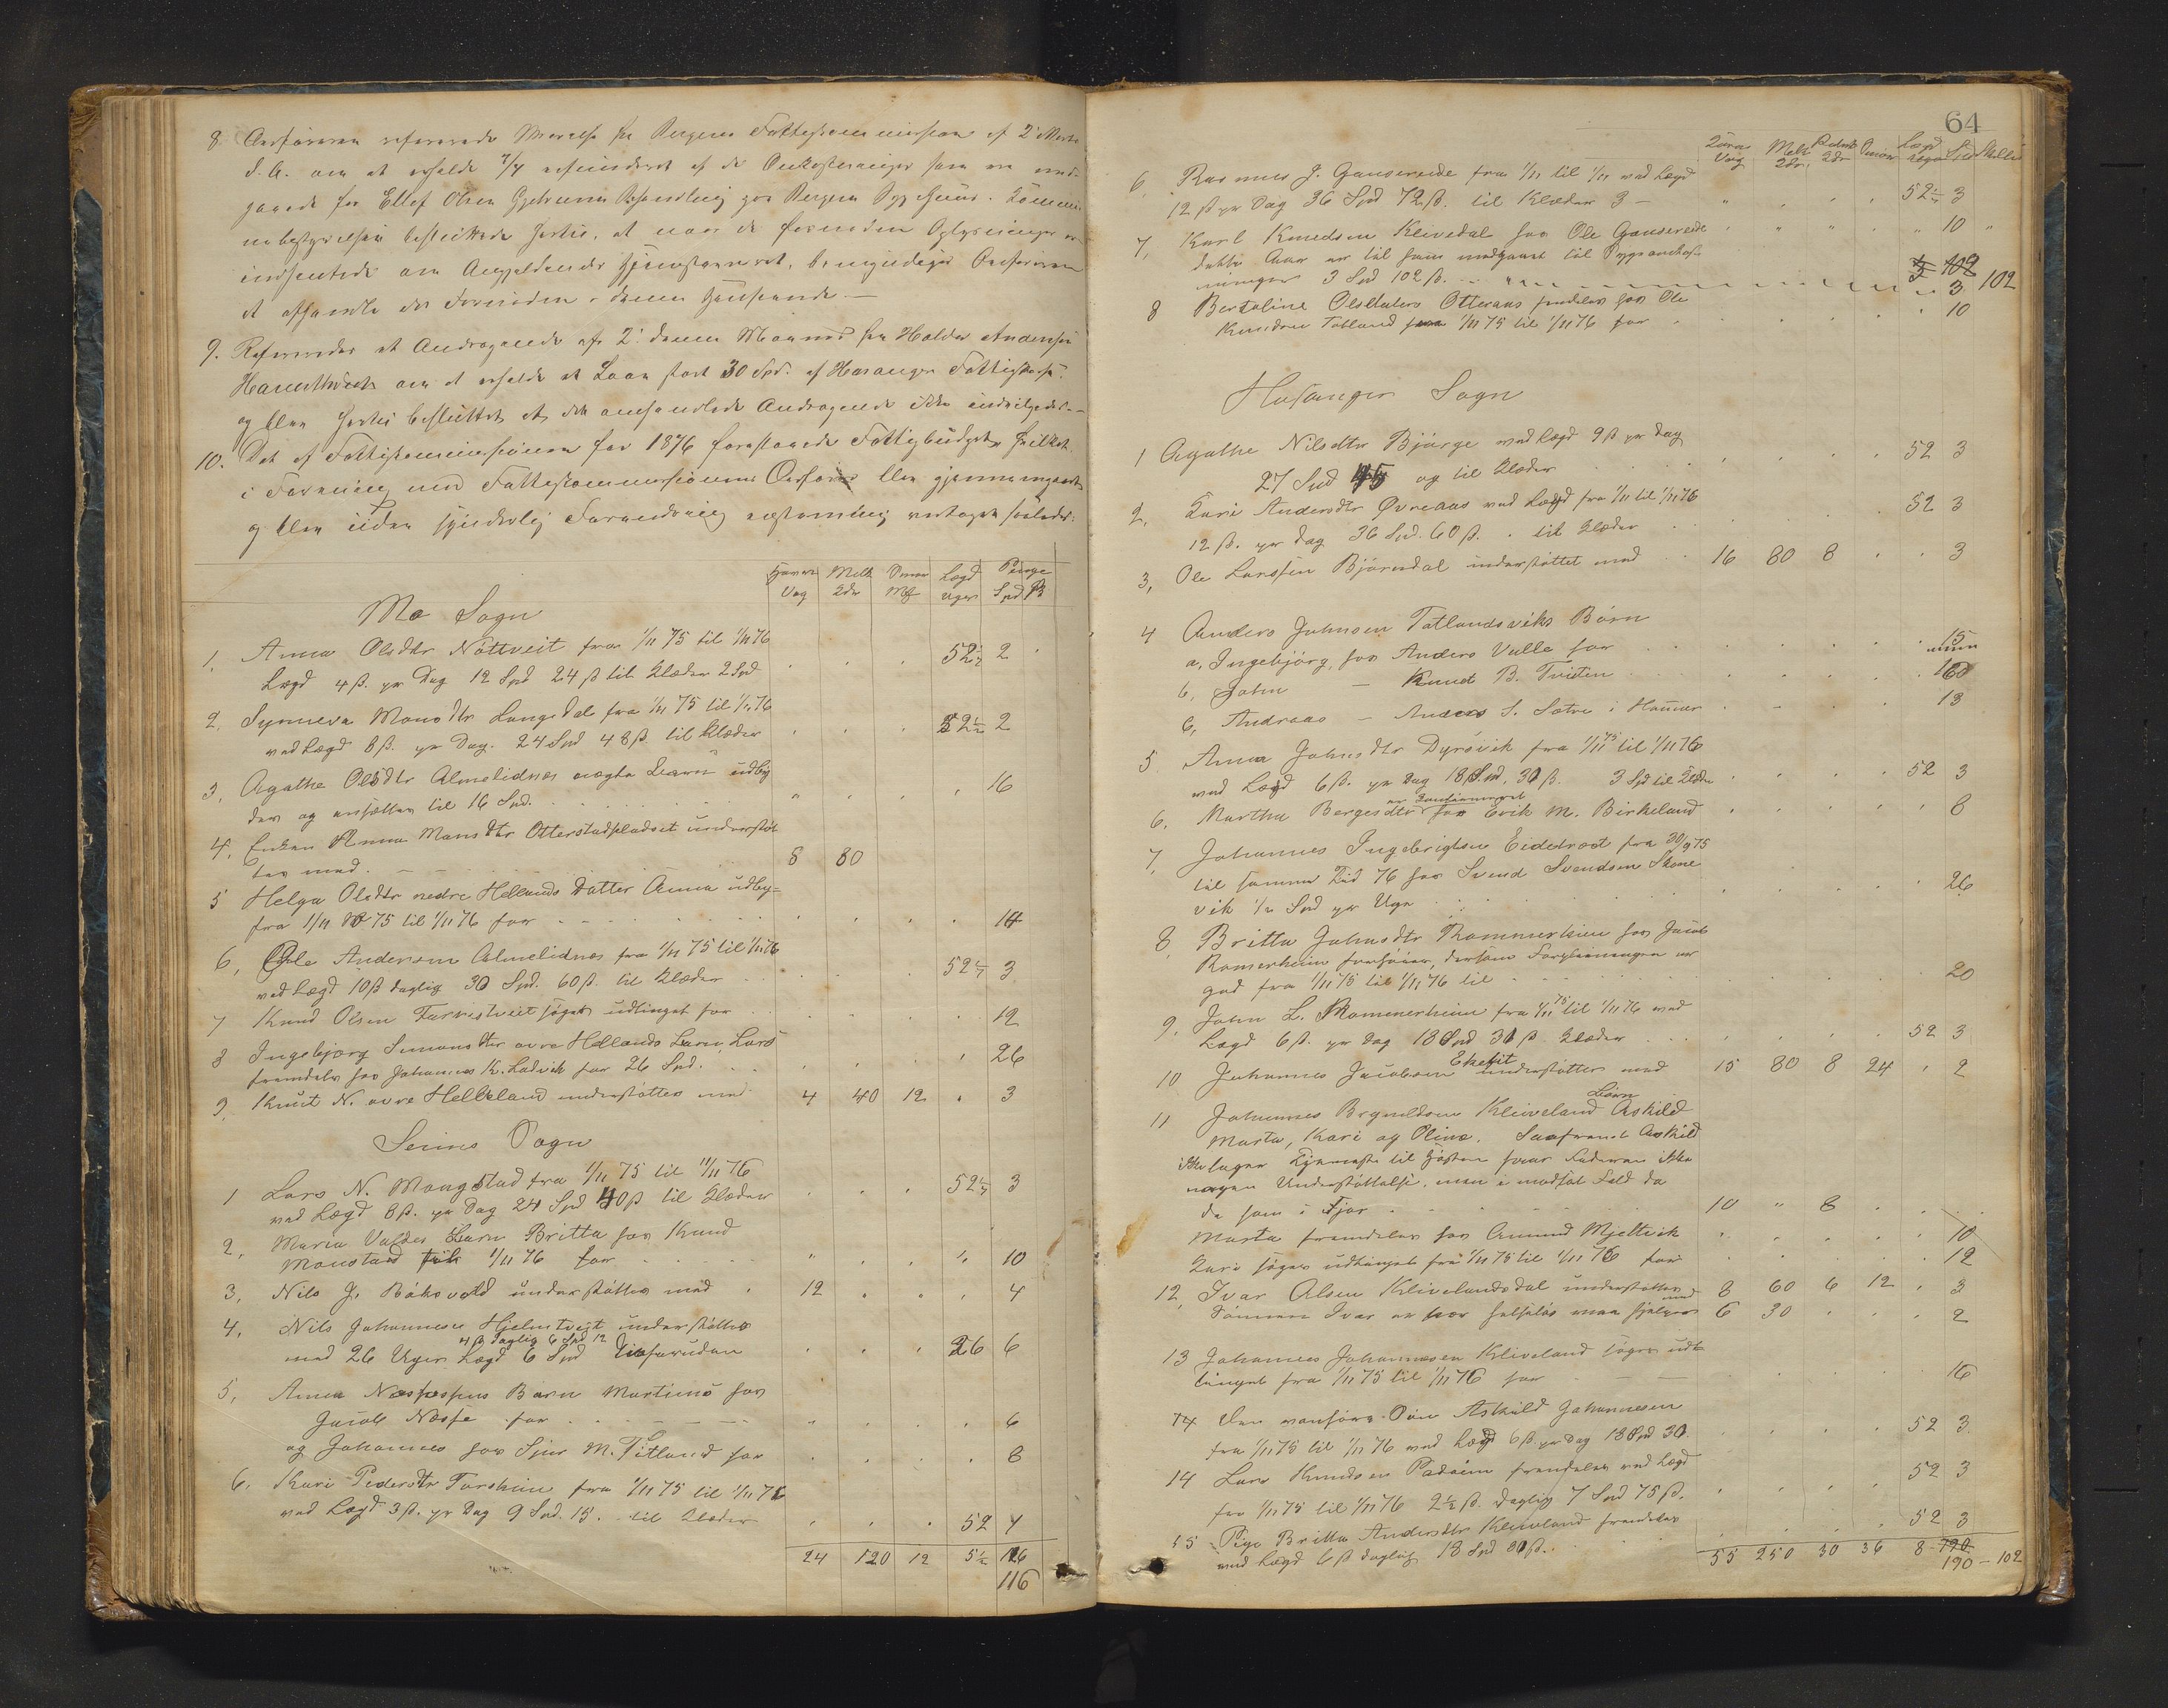 8. Ordføreren refererede Skrivelse fra Bergens Fattigkommission af 2 Marts
d. A. om at erholde 3/4 refunderet af de Omkostninger som er med-
gaaede for Ellef Olsen Behandling paa Bergens Sygehuus.
besluttede hertil, at naar de fornødne Oplysninger er
indsendte om Angjældendes Hjemstavnsret, bemyndiges Ordføreren
at afhandle det Fornødne i denne Henseende. —
9. Refereredes et Andragende af 2 denne Maaned fra Halder Andersen
om at erholde et Laan stort 30 Spd. af Fattigkasse.
og blev hertil besluttet at det omhandlede Andragende ikke indvilgedes. —
10. Det af Fattigkommissionen for 1876 foreslaaede Fattigbudget, hvilket
i Forening med Fattigkommissionens Ordfører blev gjennemgaaet
og blev uden synderlig Forandring vedtaget saaledes:
Havre Vog Melk Ort Lægd Uger Penge Spd ß
Mo Sogn
1. Anna Olsdtr Nottveit fra 1/11 75 til 1/11 76
Lægd 4 ß. pr Dag 12 Spd 24 ß til Klæder 2 Spd 52 1/7 2
2. Synneva Monsdtr Langedal fra 1/11 75 til 1/11 76
ved Lægd 8 ß. pr Dag. 24 Spd 48 ß. til Klæder 52 1/2 2
3. Agathe Olsdtr Almelidnes uægte Barn udby
des og ansættes til 16 Spd. 16
4. Enken Anna Monsdtr Otterstadpladset understøt
tes med. 8 80
5 Helga Olsdtr nedre Hellands Datter Anna udby-
fra 1/11 75 til 1/11 76 for 14
6, Ole Andersen Almelidnes fra 1/11 75 til 1/11 76
ved Lægd 10 ß daglig 30 Spd. 60 ß. til Klæder 52 1/7 3
7 Knud Olsen Farestveit søges udtinget for 12
8 Ingebjørg Simonsdtr øvre Hellands Barn, Lars
fremdeles hos Johannes K. Ladvik for 26 Spd. 26
9. Knut N. øvre Helleland understøttes med 4 40 12 3
Seims Sogn
1 Lars N. Mongstad fra 1/11 75 til 1/11 76
ved Lægd 8 ß. pr Dag 24 Spd 40 ß til Klæder 52 1/7 3
2, Maria Valdes Barn Britta hos Knud
Monstad til 1/11 76 for 10
3, Nils J. Båtsvold understøttes med 12 4
4. Nils Johannesen Hjelmtveit understøttes
4 ß daglig 6 Spd 12
med 26 Uger Lægd 6 Spd desforuden 26 6
5, Anna Barn Martinus hos
Jacob Næsse for 6
og Johannes hos Sjur M. Titland for 8
6. Kari Pedersdtr Torsheim fra 1/11 75 til 1/11 76
ved Lægd 3 ß. pr Dag 9 Spd. 15. til Klæder 52 4
24 120 12 5 1/2 116
116
64
Vog Melk Lægd Uger Spd Skill
6. Rasmus J. Gauserede fra 1/11 til 1/11 ved Lægd
12 ß pr Dag 36 Spd 72 ß. til Klæder 3 — 52 1/7 3
7, Karl Knudsen Klevedal hos Ole Gauserede 10
dette Aar er til ham medgaaet til Sygeomkost-
ninger 3 Spd 102 ß. 3 102
8 Bertaline Olsdatter Otteraas fremdeles hos Ole
Knudsen Totland fra 1/11 75 til 1/11 76 for 10
Hosanger Sogn
1 Agathe Nilsdtr Bjørge ved Lægd 9 ß pr Dag
27 Spd 45 og til Klæder 52 3
2. Kari Andersdtr Øvreaas ved Lægd fra 1/11 til 1/11 76
12 ß. pr Dag 36 Spd. 60 ß. til Klæder 52 3
3, Ole Larssen Bjørndal understøttet med 16 80 8 3
4 Anders Johnsen Totlandsviks Børn
a, Ingebjørg, hos Anders Valle for 15
b, John — Knud B. Tveiten 16
c, Andreas — Anders S. Sætre i 13
5 Anna Johnsdtr Dyrøvik fra 1/11 75 til 1/11 76
ved Lægd 6 ß. pr Dag 18 Spd. 30 ß. 3 Spd til Klæder 52 3
6, Martha Børgesdtr hos Erik M. Birkeland 8
7, Johannes Ingebrigtsen Eidetræet fra 30/9 75
til samme Tid 76 hos Svend Svendsen Skone
vik 1/2 Spd pr Uge 26
8 Britta Johnsdtr Rommerheim hos Jacob
Romerheim dersom Forpleiningen er
god fra 1/11 75 til 1/11 76 til 20
9. John L. Rommerheim fra 1/11 75 til 1/11 76 ved
Lægd 6 ß. pr Dag 18 Spd 30 ß Klæder 52 3
10 Johannes Jacobsen Eketeit understøttes med 15 80 8 24 2
11 Johannes Brynildsen Kleiveland Børn Askild
Marta, Kari og Olina. Saafremt Askild
ikke tager Tjeneste til Høsten faar Faderen ikke
nogen Understøttelse, men i modsat Fald da
da som i Fjor 10 " 8
Marta fremdeles hos Amund Mjeltvik 10
Kari søges udtinget fra 1/11 75 til 1/11 76 for 12
12, Ivar Olsen Kleivelandsdal understøttes med 8 60 6 12 3
Sønnen Ivar er hjelpeløs maa hjelpes 6 30 2
13 Johannes Johannessen Kleiveland søges udt
tinget fra 1/11 75 til 1/11 76 for 16
14 Den vanføre Søn Askild Johannesen
fra 1/11 75 til 1/11 76 ved Lægd 6 ß. pr Dag 18 Spd 30. 52 3
14 Lars Knudsen Padøen fremdeles ved Lægd
fra 1/11 75 til 1/11 76 2 1/2 ß. daglig 7 Spd 75 ß. 52 3
15 Pige Britta Andersdtr Kleiveland fremdeles
ved Lægd 6 ß daglig 18 Spd 30 ß. 52 3
55 250 30 36 8 190
190 – 102